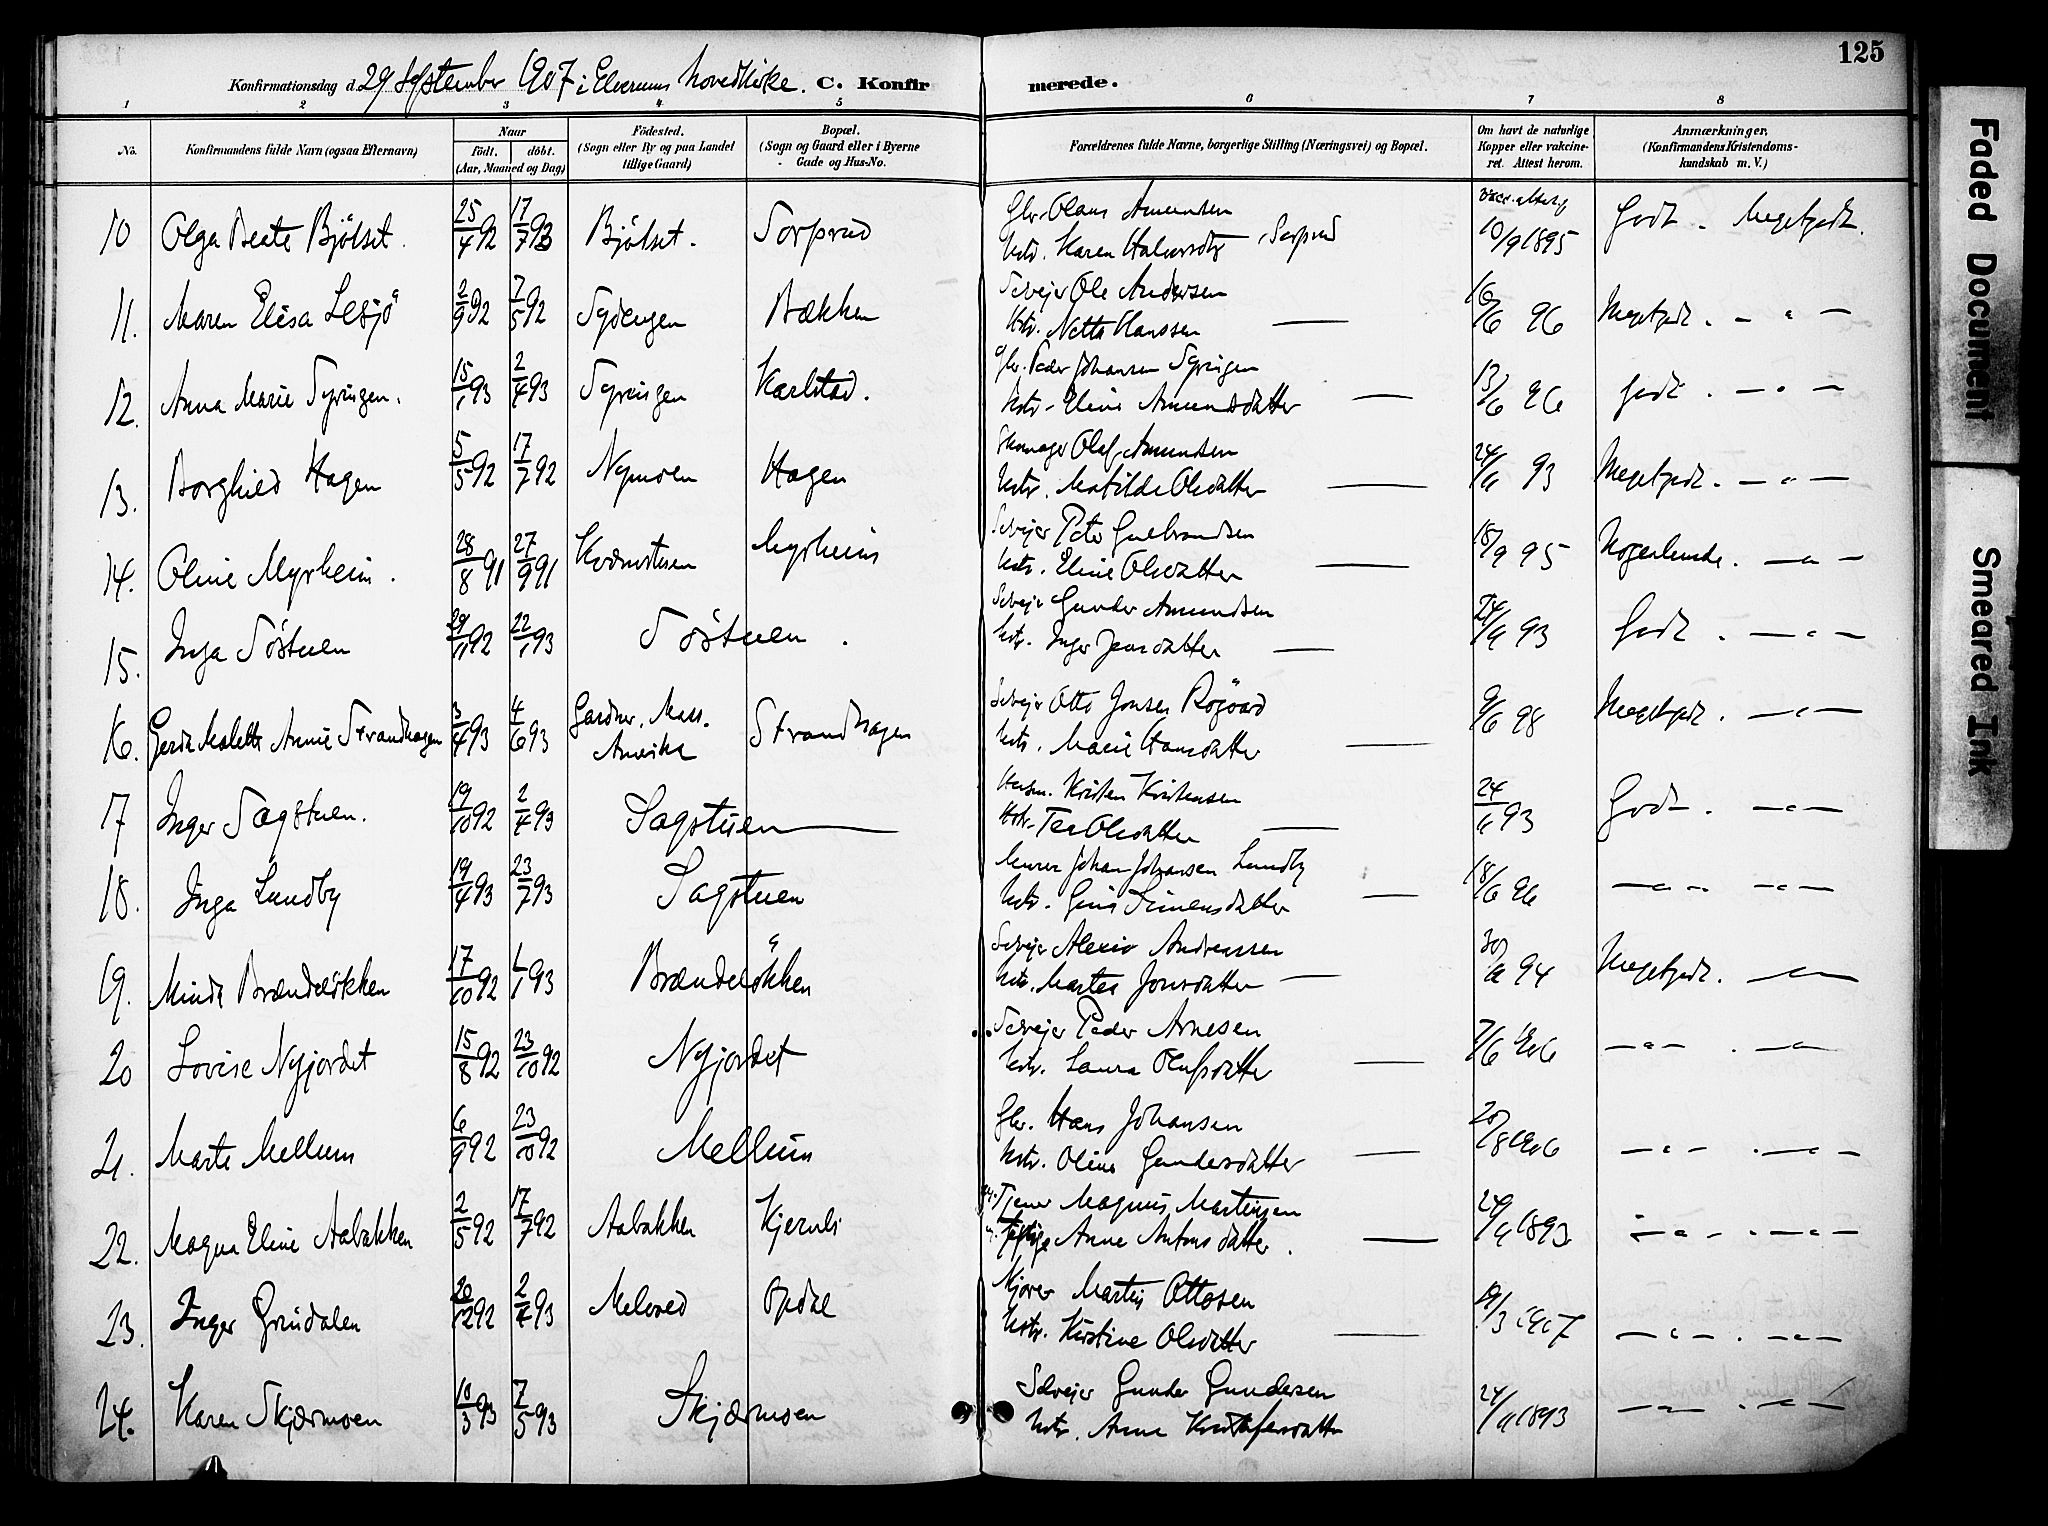 125
Konfirmationsdag d. 29 September 1907 i Elverums hovedkirke. C. Konfirmerede.
1 2 3 4 5 6 7 8
No. Konfirmandens fulde Navn (ogsaa Efternavn) Naar født, døbt. (Aar, Maaned og Dag) Födested. (Sogn eller By og paa Landet tillige Gaard) Bopæl. (Sogn og Gaard eller i Byerne Gade og Hus-No. Forældrenes fulde Navne, borgerlige Stilling (Næringsvei) og Bopæl. Om havt de naturlige Kopper eller vakcineret. Attest herom. Anmærkninger. (Konfirmandens Kristendomskundskab m. V.)
10 Olga Beate Bjölset. 25/4 92 17/7 93 Bjölset. Sorprud Gbr. Olaus Amundsen
Hstr. Karen Halvorsdtr, Sorprud 10/9 1895 Godt. Megetgodt.
11. Maren Elisa Lesjö 2/9 92 7/5 92 Sydengen Bækken Selvejer Ole Andersen
Hstr. Nette Hanssen — 16/6 96 Megetgodt. — " —
12. Anna Marie Syringen. 15/1 93 2/4 93 Syringen Karlstad. Gbr. Peder Johansen Syringen
Hstr. Eline Amundsdatter — 13/6 96 Godt. — " —
13. Borghild Hagen 5/5 92 17/7 92 Nymoen Hagen Skomager Olaf Amundsen
Hstr. Matilde Olsdatter — 24/11 93 Megetgodt. — " —
14. Oline Myrheim. 28/8 91 27/9 91 Kvernstuen Myrheim Selvejer Peter Gulbrandsen
Hstr. Eline Olsdatter — 18/9 95 Nogenlunde. — " —
15. Inga Söstuen 29/11 92 22/1 93 Söstuen. Selvejer Gunder Amundsen
Hstr. Inger Jensdatter — 24/11 93 Godt. — " —
16. Gerda Malette Annie Strandhagen 3/4 93 4/6 93 Gardner, Mass. Amerika Strandhagen Selvejer Otto Jonsen
Hstr. Marie Hansdatter — 9/6 98 Megetgodt. — " —
17 Inger Sagstuen. 19/10 92 2/4 93 Sagstuen — Kristen Kristensen
Hstr. Tea Olsdatter — 24/11 93 Godt. — " —
18. Inga Lundby 19/4 93 23/7 93 Sagstuen Murer Johan Johansen Lundby
Hstr. Gina Simensdatter — 18/6 96 — " — — " —
19. Minda Brændeløkken 17/10 92 1/1 93 Brændeløkken Selvejer Alexis Andreassen
Hstr. Martea Jonsdatter — 30/11 94 Megetgodt. — " —
20 Lovise Nyjordet 15/8 92 23/10 92 Nyjordet Selvejer Peder Arnesen
Hstr. Laura Olufsdatter — 7/6 1906 — " — . — " —
21. Marte Mellum 6/9 92 23/10 92 Mellum Gbr. Hans Johansen
Hstr. Oline Gundersdatter — 20/8 1906 — " — . — " —
22. Magna Eline Aabakken 2/5 92 17/7 92 Aabakken Kjernli Tjener Magnus Martinsen
Anne Antonsdatter. — 24/11 1893 — " — . — " —
23. Inger Grindalen 20/12 92 2/4 93 Melaved Opdal Martin Ottosen
Hstr. Kristine Olsdatter — 19/3 1907 — " — . — " —
24. Karen Skjærmoen 10/3 93 7/5 93 Skjærmoen Selvejer Gunder Gundersen
Hstr. Anne Kristofersdatter 24/11 1893 — " — . — " —
Faded Document
Smeared Ink